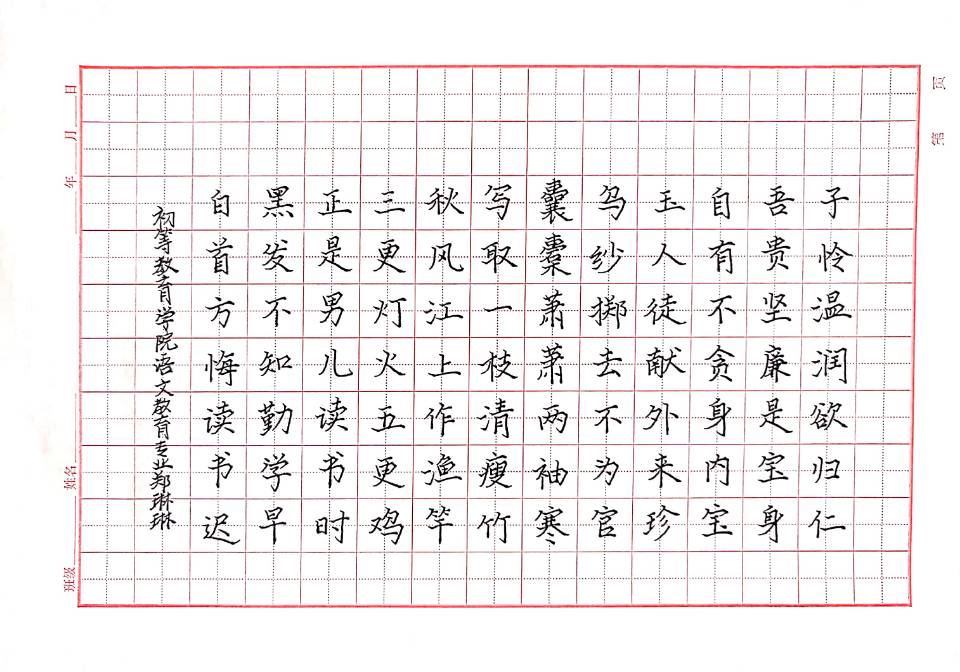 子怜温润欲归仁
吾贵坚廉是宝身
自有不贪身内宝
玉人徒献外来珍
乌纱掷去不为官
囊橐萧萧两袖寒
写取一枝清瘦竹
秋风江上作渔竿
三更灯火五更鸡
正是男儿读书时
黑发不知勤学早
白首方悔读书迟
初等教育学院语文教育专业郑琳琳
第 页
年 月 日
姓名
班级